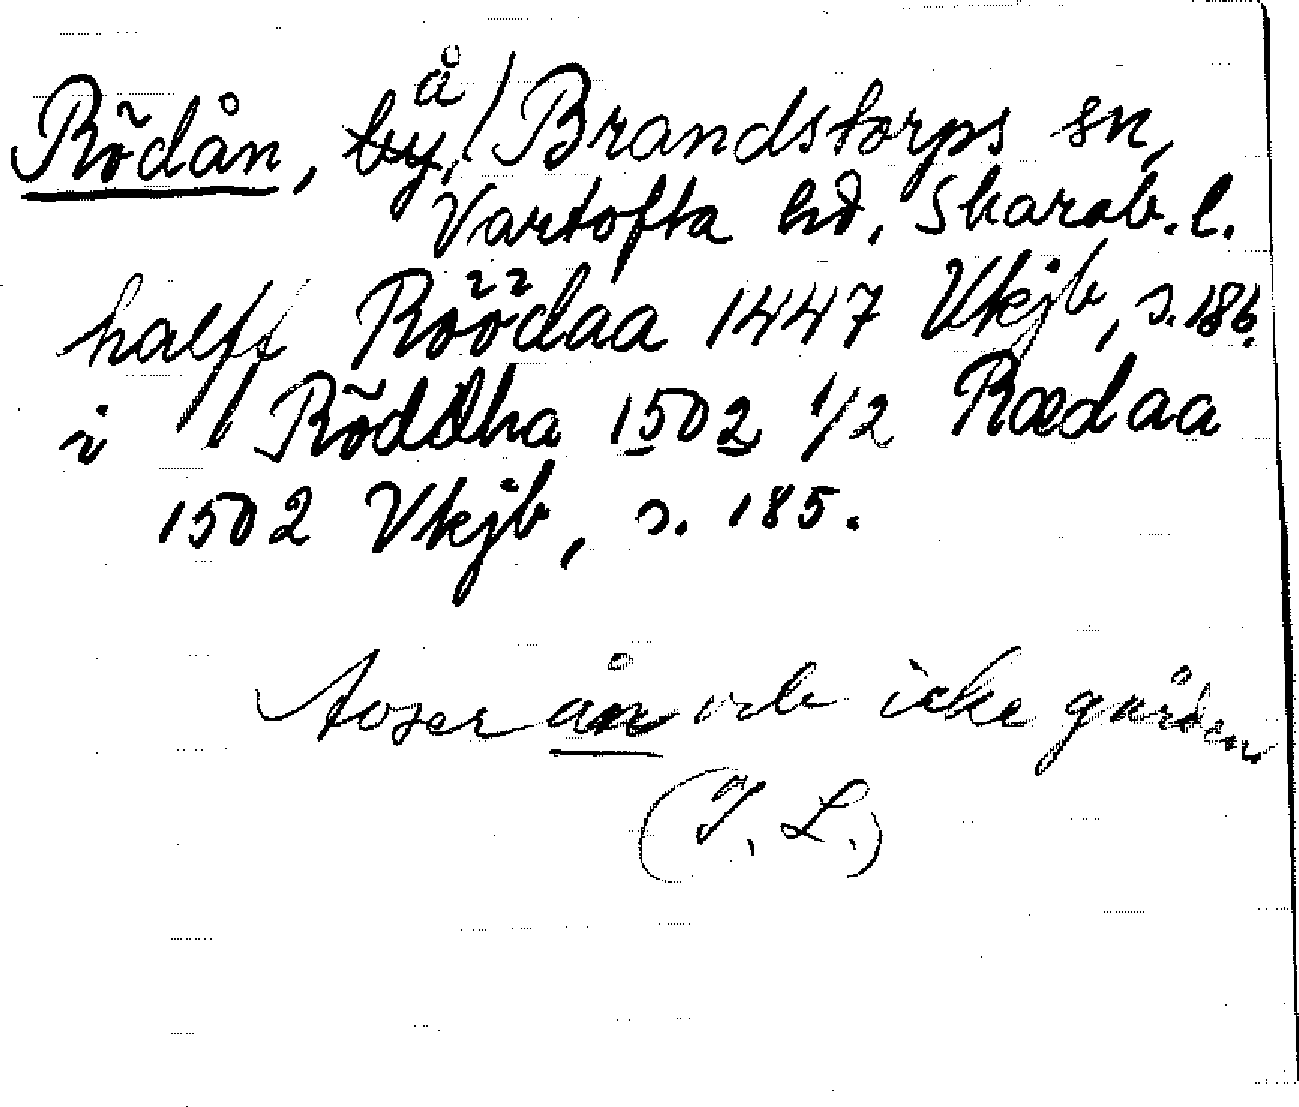 Rödån, by, å / Brandstorps sn,
Vartofta hd, Skarab. l.
halff Röödaa 1447 Vkjb, s. 186.
i Röddha 1502 1/2 Rædaa
1502 Vkjb, s. 185.
Avser ån och icke gården
(I. L.)